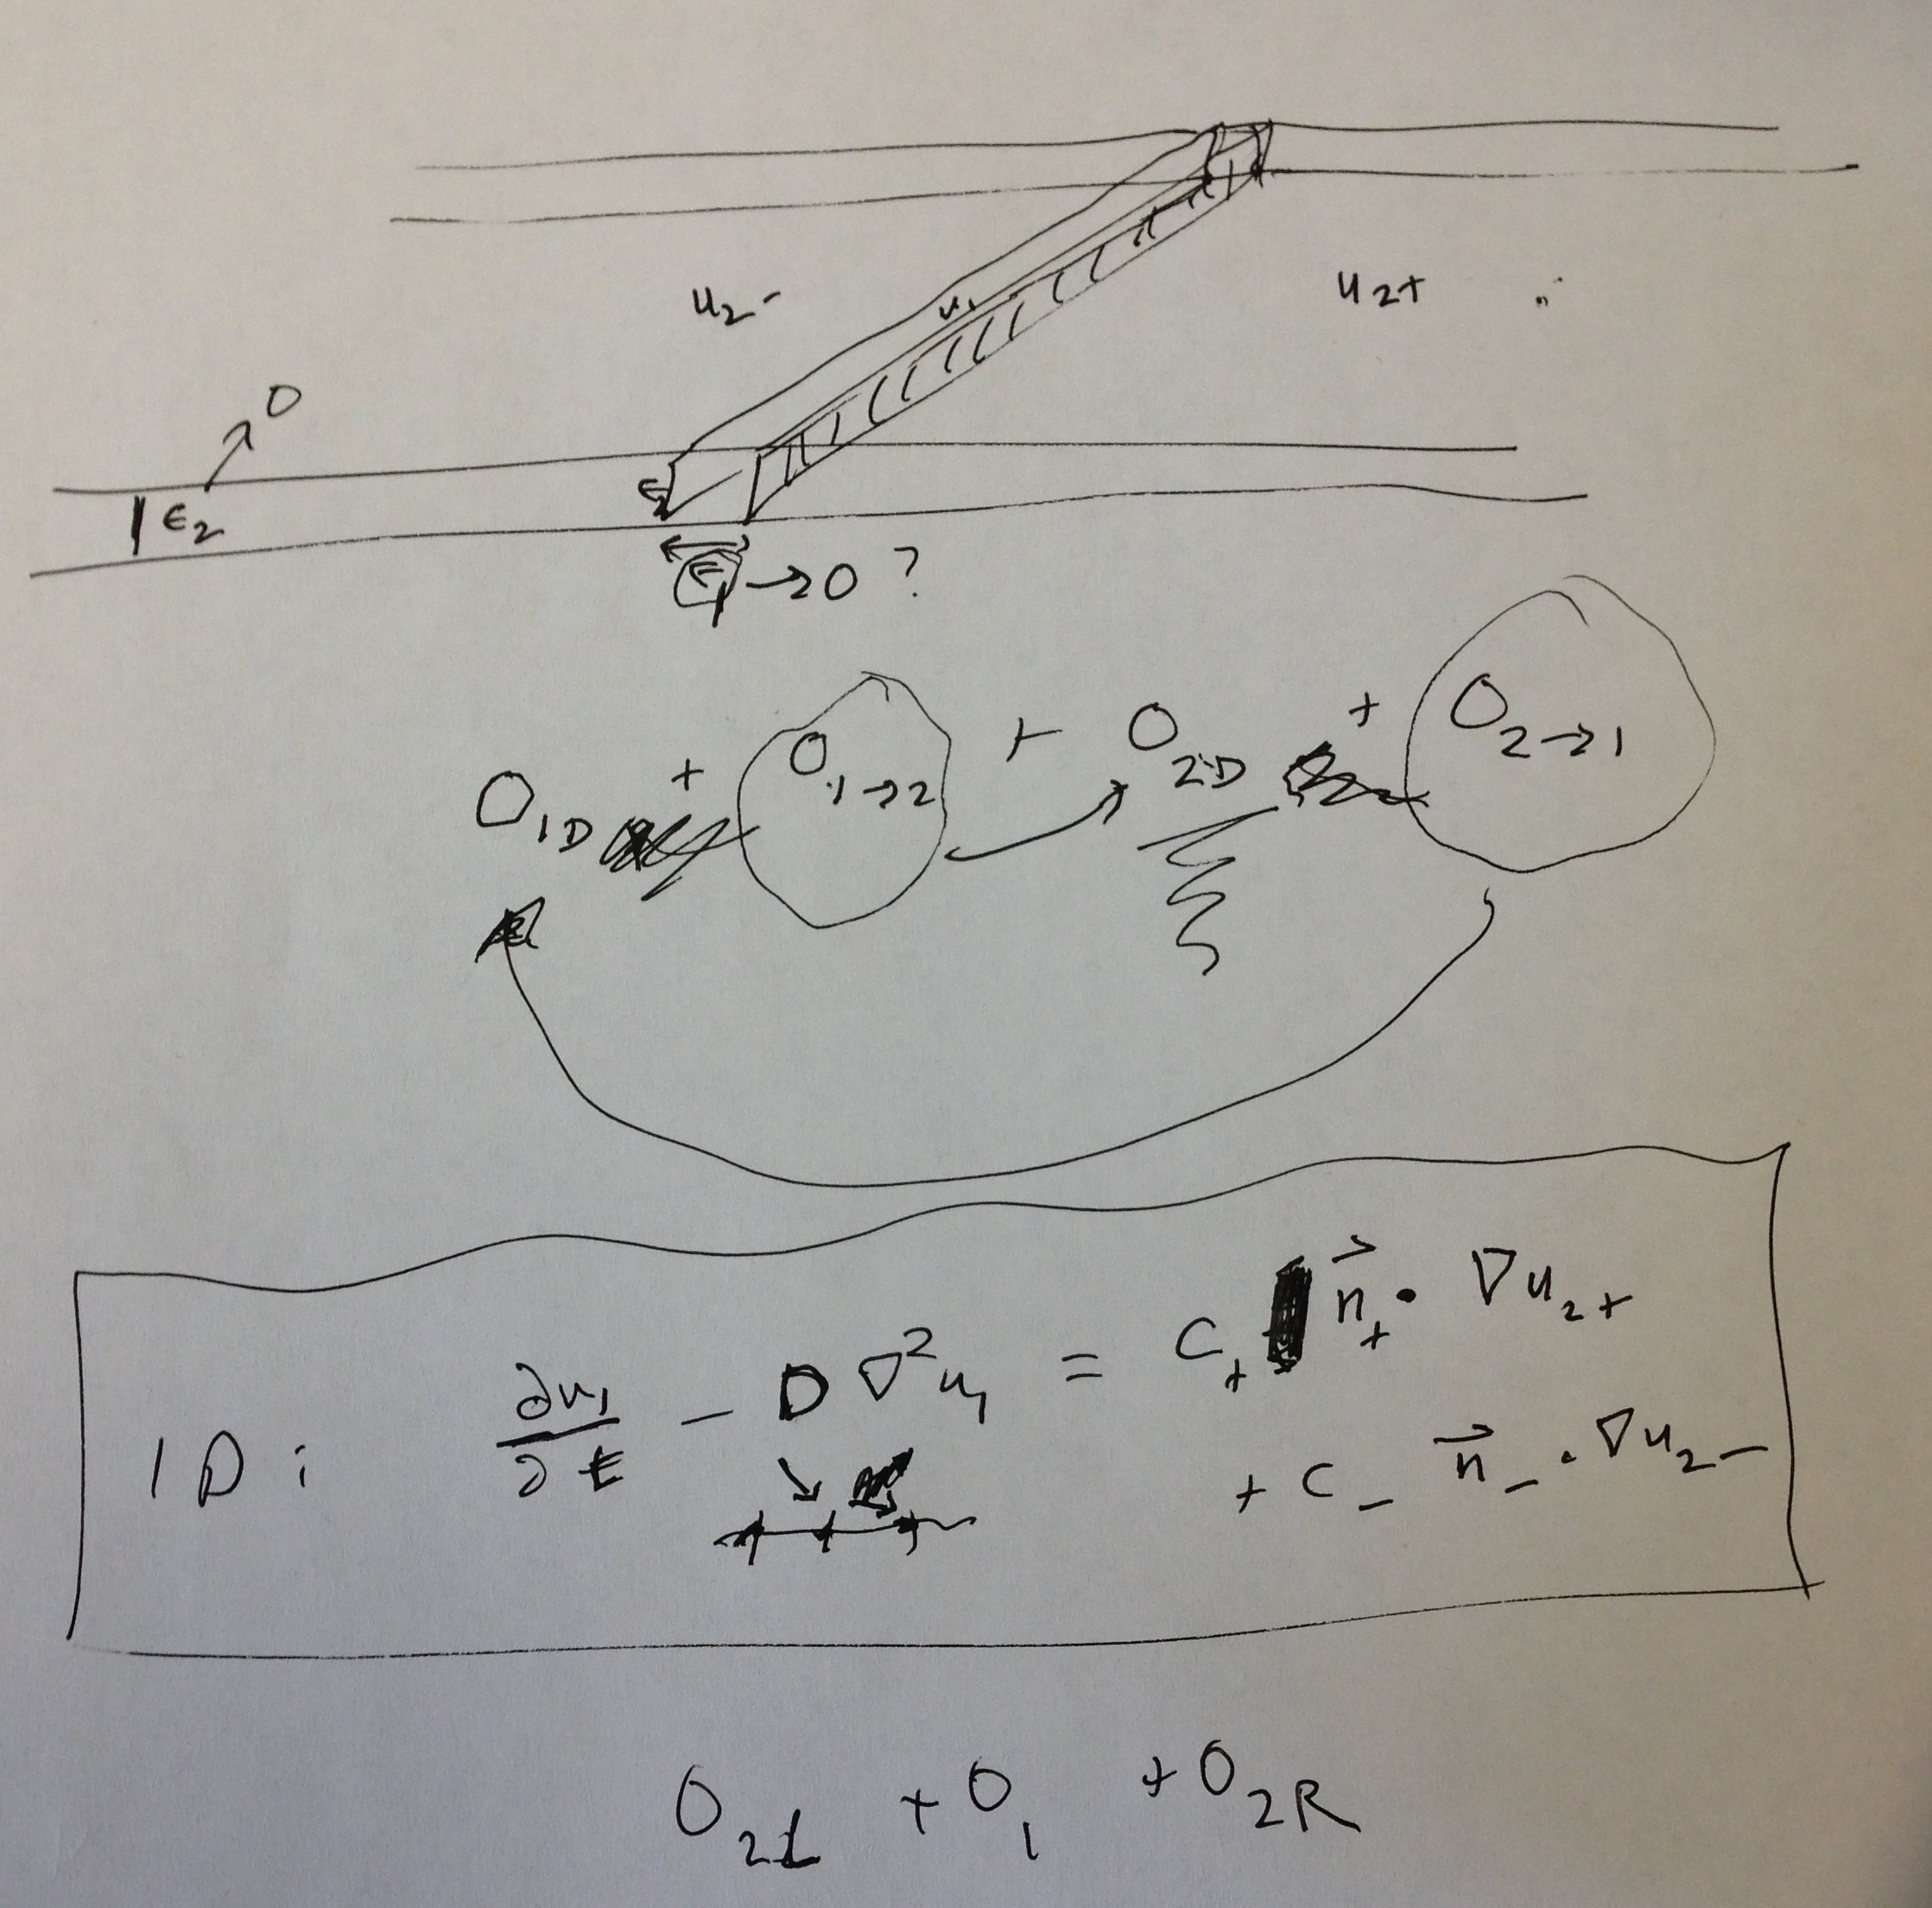 u₂- u₁ u₂+
0
ε₂
ε₁ → 0 ?
O₁D + O₁→₂ + O₂D + O₂→₁
1D : ∂u₁/∂t - D ∇²u₁ = C₊ n⃗₊ • ∇u₂+
+ C₋ n⃗₋ · ∇u₂-
O₂L + O₁ + O₂R